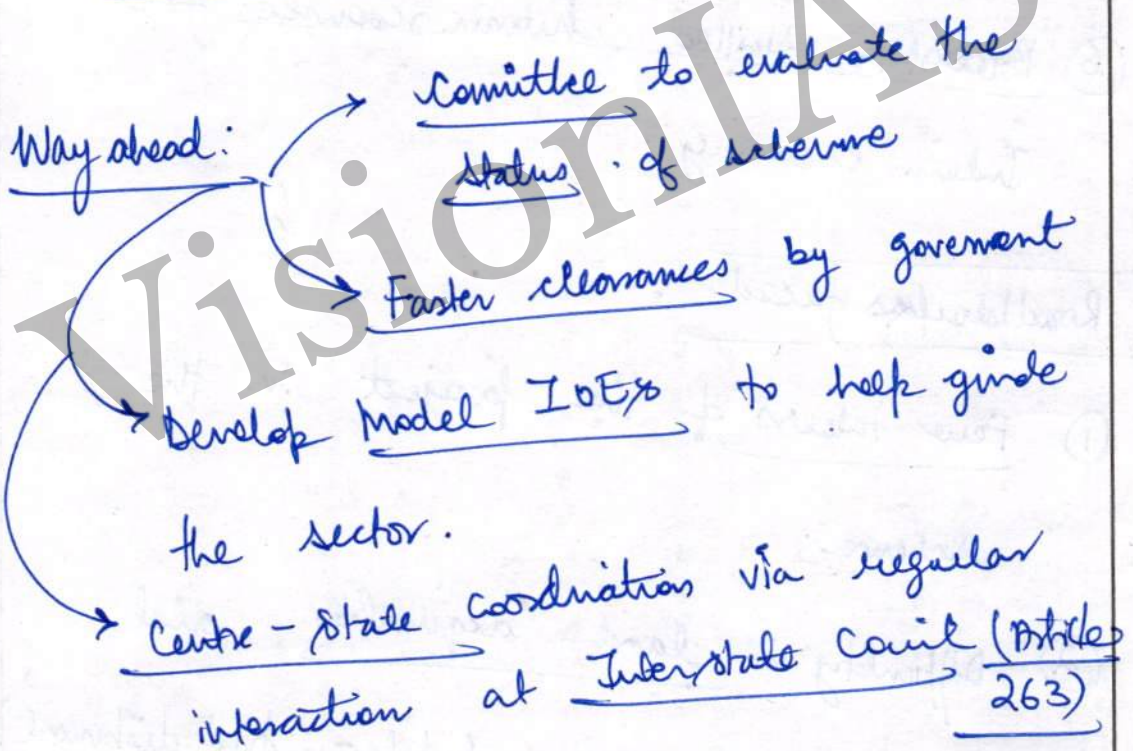 Way ahead:
Comittee to evaluate the
status of scheme
Faster clearances by goverment
Develop Model IoEs to help guide
the sector.
Centre - State coordination via regular
interaction at Interstate Council (Article
263)
VisionIAS